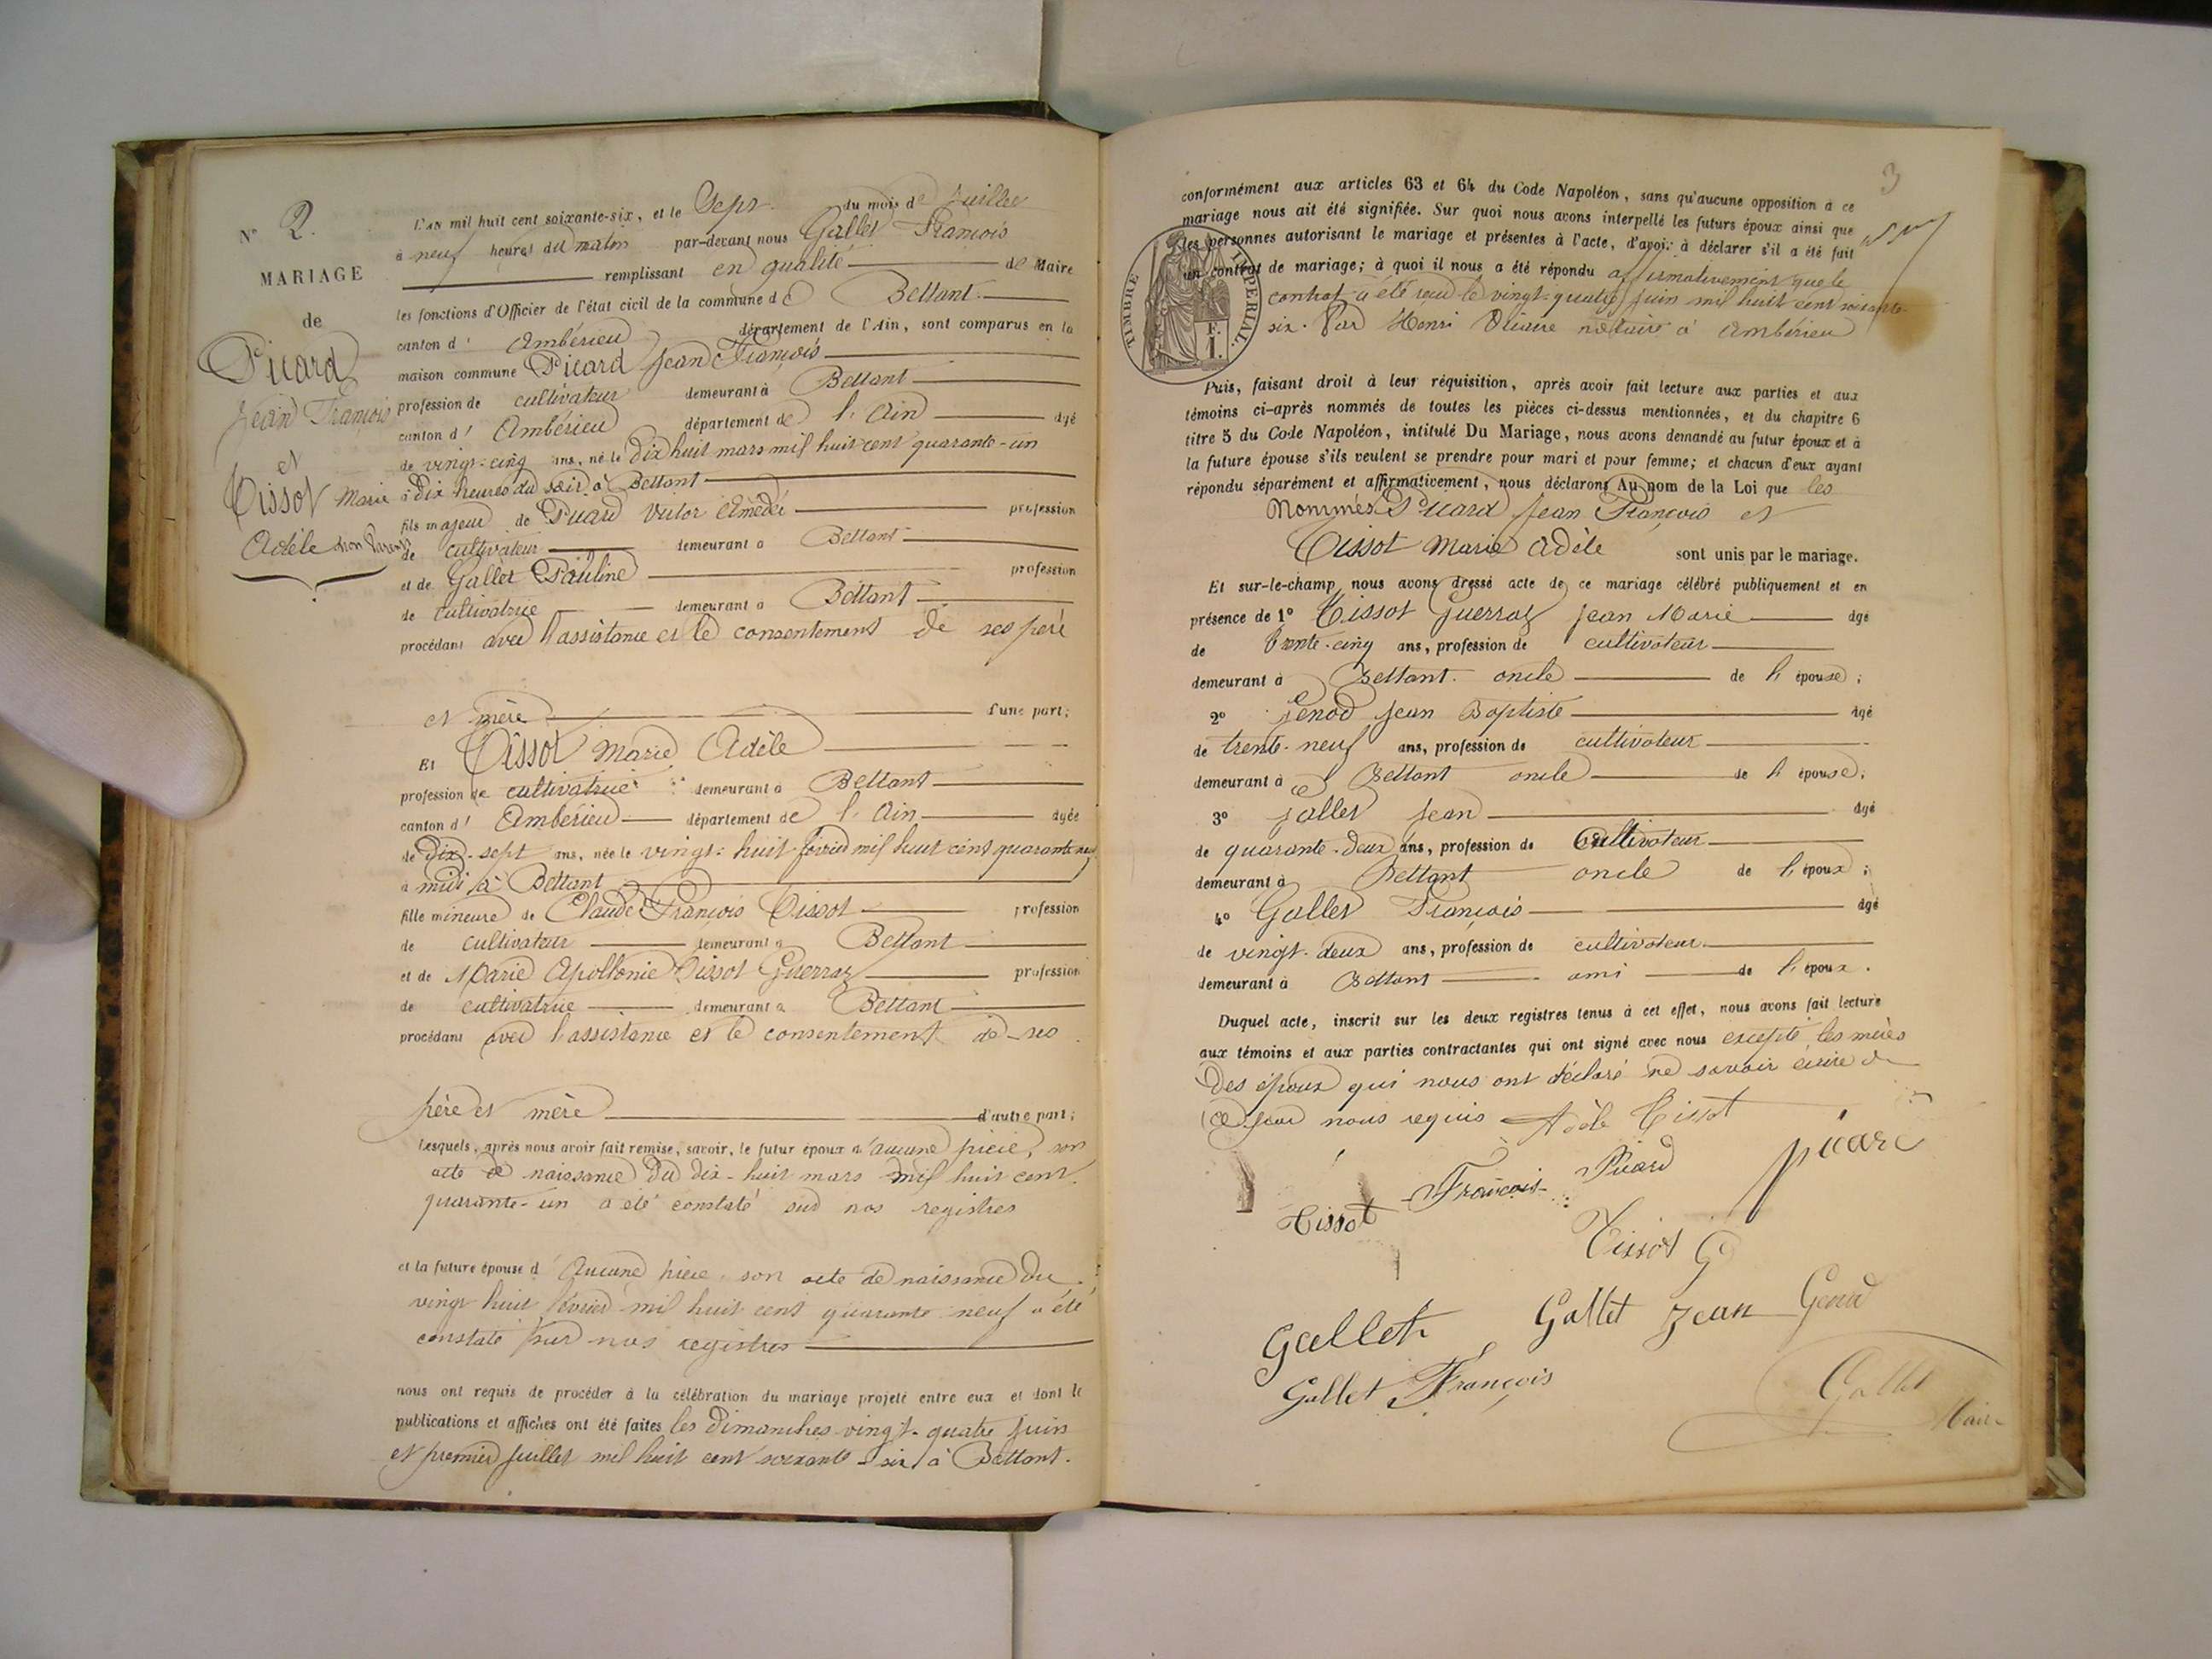 N° 2.
MARIAGE
de
Picard
Jean François
et
Tissot Marie
Adèle non Parents
L'AN mil huit cent soixante-six, et le Sept du mois de Juillet
à neuf heures du matin par-devant nous Gallet François
remplissant en qualité de Maire
les fonctions d'Officier de l'état civil de la commune de Bettant
canton d' Ambérieu département de l'Ain, sont comparus en la
maison commune Picard Jean François
profession de cultivateur demeurant à Bettant
canton d' Ambérieu département de l'Ain âgé
de vingt-cinq ans, né le Dix huit mars mil huit cent quarante-un
à Dix heures du soir à Bettant
fils majeur de Picard Victor Amédé profession
de cultivateur demeurant à Bettant
et de Gallet Pauline profession
de cultivatrice demeurant à Bettant
procédant avec l'assistance et le consentement de ses père
et mère d'une part;
Et Tissot Marie Adèle
profession de cultivatrice demeurant à Bettant
canton d' Ambérieu département de l'Ain âgée
de Dix-sept ans, née le vingt-huit février mil huit cent quarante neuf
à midi à Bettant
fille mineure de Claude François Tissot profession
de cultivateur demeurant à Bettant
et de Marie Apollonie Tissot Guerraz profession
de cultivatrice demeurant à Bettant
procédant avec l'assistance et le consentement de ses
père et mère d'autre part;
Lesquels, après nous avoir fait remise, savoir, le futur époux d'aucune pièce, son
acte de naissance du dix-huit mars mil huit cent
quarante-un a été constaté sur nos registres
et la future épouse d'Aucune pièce, son acte de naissance du
vingt huit février mil huit cent quarante neuf a été
constaté sur nos registres
nous ont requis de procéder à la célébration du mariage projeté entre eux et dont le
publications et affiches ont été faites les Dimanches vingt-quatre juin
et premier juillet mil huit cent soixante-six à Bettant.
3
conformément aux articles 63 et 64 du Code Napoléon, sans qu'aucune opposition à ce
mariage nous ait été signifiée. Sur quoi nous avons interpellé les futurs époux ainsi que
les personnes autorisant le mariage et présentes à l'acte, d'avoir à déclarer s'il a été fait
un contrat de mariage; à quoi il nous a été répondu affirmativement que le
contrat a été reçu le vingt-quatre juin mil huit cent soixante-
six. Par Henri notaire à Ambérieu
TIMBRE IMPERIAL.
1 F.
Puis, faisant droit à leur réquisition, après avoir fait lecture aux parties et aux
témoins ci-après nommés de toutes les pièces ci-dessus mentionnées, et du chapitre 6
titre 5 du Code Napoléon, intitulé Du Mariage, nous avons demandé au futur époux et à
la future épouse s'ils veulent se prendre pour mari et pour femme; et chacun d'eux ayant
répondu séparément et affirmativement, nous déclarons Au nom de la Loi que les
Nommés Picard Jean François et
Tissot Marie Adèle sont unis par le mariage.
Et sur-le-champ nous avons dressé acte de ce mariage célébré publiquement et en
présence de 1° Tissot Guerraz Jean Marie âgé
de trente-cinq ans, profession de cultivateur
demeurant à Bettant oncle de l'épouse;
2° Genod Jean Baptiste âgé
de trente-neuf ans, profession de cultivateur
demeurant à Bettant oncle de l'épouse;
3° Gallet Jean âgé
de quarante-deux ans, profession de Cultivateur
demeurant à Bettant oncle de l'époux;
4° Gallet François âgé
de vingt-deux ans, profession de cultivateur
demeurant à Bettant ami de l'époux.
Duquel acte, inscrit sur les deux registres tenus à cet effet, nous avons fait lecture
aux témoins et aux parties contractantes qui ont signé avec nous excepté les mères
Des époux qui nous ont déclaré ne savoir écrire de
ce par nous requis Adèle Tissot
François Picard picard
Tissot
Tissot G
Gallet Gallet Jean Genod
Gallet François
Gallet
Maire